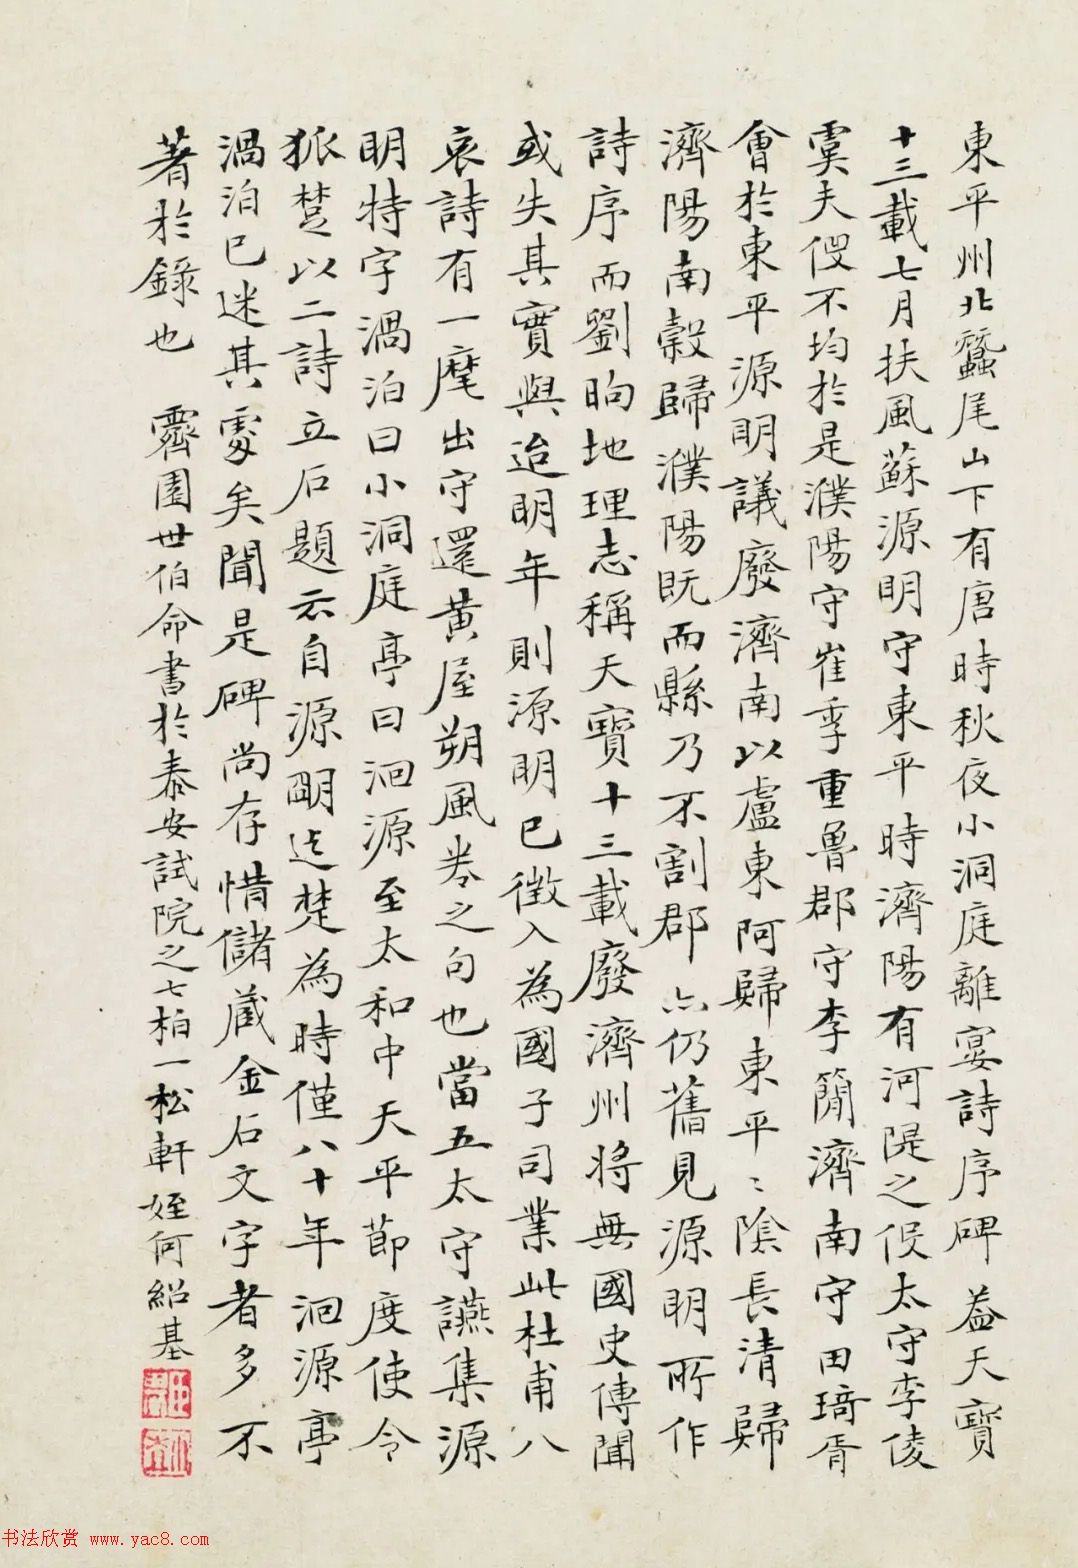 東平州北蠶尾山下有唐時秋夜小洞庭離宴詩序碑葢天寶
十三載七月扶風蘇源明守東平時濟陽有河隄之役太守李倰
虞夫役不均於是濮陽守崔季重魯郡守李簡濟南守田琦胥
會於東平源明議廢濟南以盧東阿歸東平〻陰長清歸
濟陽南穀歸濮陽既而縣乃不割郡亦仍舊見源明所作
詩序而劉昫地理志稱天寶十三載廢濟州將無國史傳聞
或失其實與迨明年則源明已徵入為國子司業此杜甫八
哀詩有一麾出守還黄屋朔風卷之句也當五太守讌集源
明特字渦泊曰小洞庭亭曰洄源至太和中天平節度使令
狐楚以二詩立石題云自源明迄楚為時僅八十年洄源亭
渦泊已迷其處矣聞是碑尚存惜儲蔵金石文字者多不
著於錄也 霽園世伯命書於泰安試院之七柏一松軒姪何紹基
书法欣赏 www.yac8.com